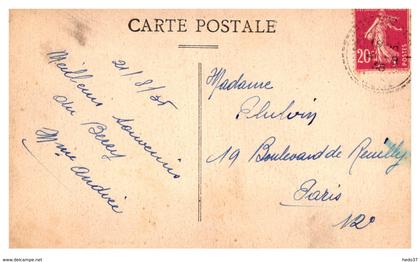 CARTE POSTALE
21/8/35
Meilleurs souvenirs
du Berry
Mme Andrée
20
POSTES
Madame
19 Boulevard de Reuilly
Paris
12e
www.delcampe.net
hedo37